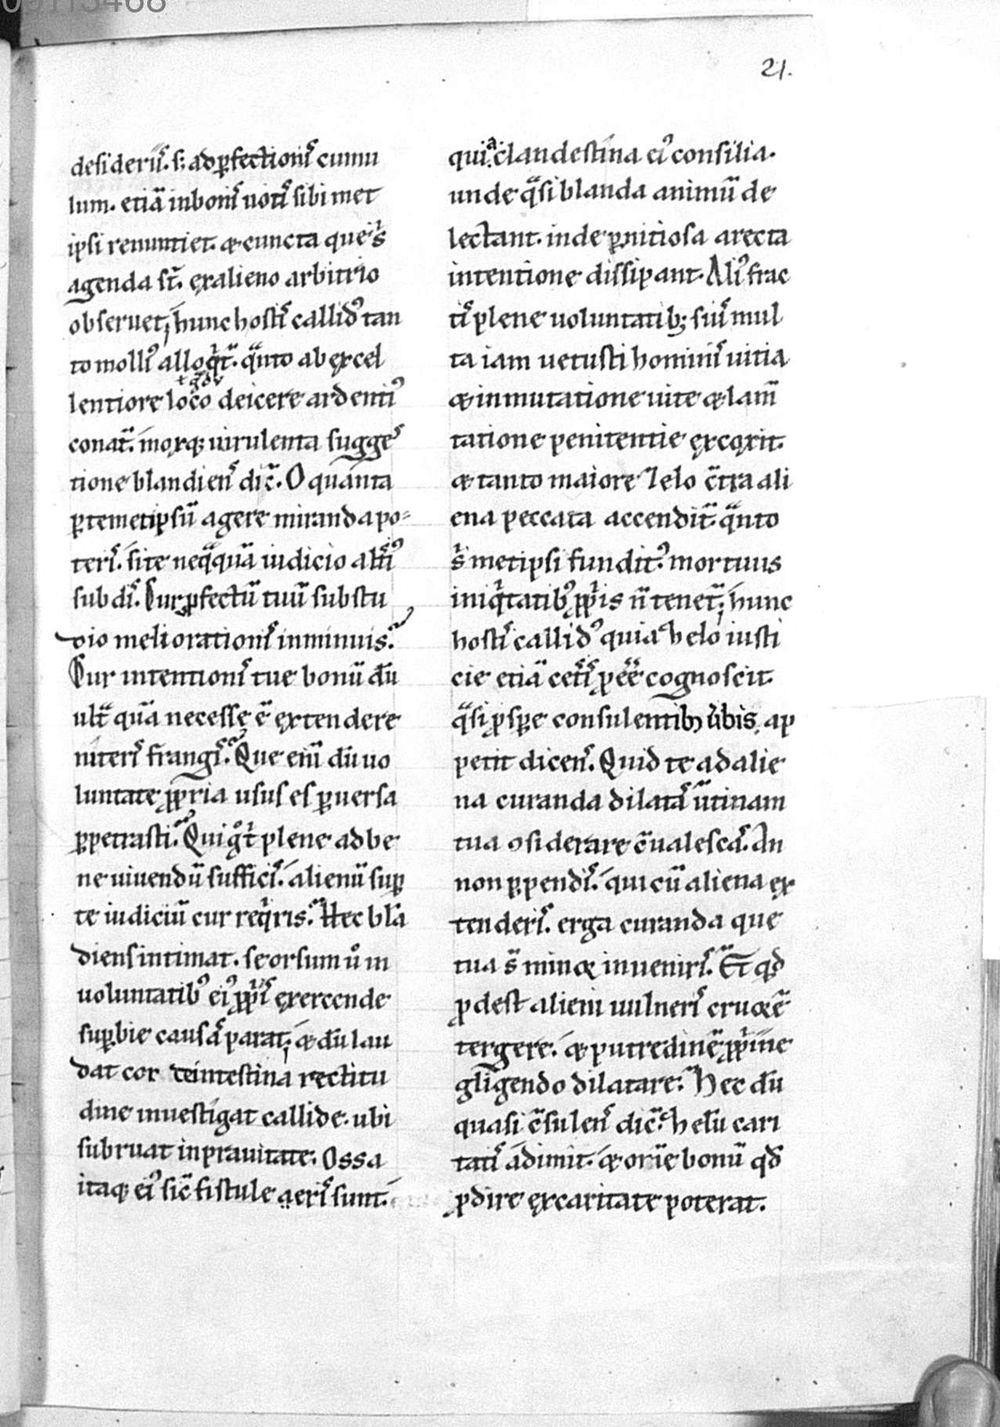 00113468
21.
desideriū. s; ad ꝑfectionis cumu
lum. etiā in bonis uotis sibi met
ipsi renuntiet. & cuncta que s̄
agenda st̄. ex alieno arbitrio
obseruet; hunc hostis callidꝰ tan
to mollꝰ alloqͥt̄. qͣnto ab excel
lentiore loco deicere ardentiꝰ
gͣdu
conat̄. moxq; uirulenta sugges
tione blandiens dic̄. O quanta
ꝑ temetipsū agere miranda po-
teris. si te neqͣquā iudicio altiꝰ
subdis. Cur ꝓfectū tuū sub stu
dio meliorationis inminuis.
Cur intentionis tue bonū dū
ultͣ quā necesse ē extendere
niteris frangis. Que enī dū uo
luntate ꝓpria usus es ꝑuersa
ꝑpetrasti. Qui gͦ t̄ plene ad be
ne uiuendū sufficis. alienū suꝑ
te iudiciū cur reqͥris. Hec blā
diens intimat. seorsum ū in
uoluntatibꝰ eiꝰ ꝓpͥis exercende
suꝑbie causas parat; & dū lau
dat cor de intestina rectitu
dine inuestigat callide. ubi
subruat in prauitate. Ossa
itaq; eiꝰ sic̄ fistule aeris sunt.
quia clandestina eiꝰ consilia.
unde qͣsi blanda animū de
lectant. inde ꝑnitiosa a recta
intentione dissipant. Aliꝰ frac
tis plene uoluntatib; suis mul
ta iam uetusti hominis uitia
& inmutatione uite & lam̄
tatione penitentie excoxit.
& tanto maiore zelo c̄tra ali
ena peccata accendit̄. qͣnto
s̄ metipsi funditꝰ mortuus
iniqͥtatibꝰ ꝓpͥis ñ tenet̄; hunc
hostis callidꝰ quia zelo iusti
cie etiā cet̄is ꝓdēē cognoscit.
qͣsi ꝓspe consulentib; ūbis ap
petit dicens. Quid te ad alie
na curanda dilatas utinam
tua ↄsiderare c̄ualescas. An
non ꝑpendis. qui cū aliena ex
tenderis. erga curanda que
tua s̄ minor inueniris. Et qͥd
ꝓdest alieni uulneris cruorē
tergere. & putredinē ꝓpͥā ne
gligendo dilatare. Hec dū
quasi c̄sulens dic̄. zelū cari
tatis adimit. & om̄e bonū qd̄
ꝓdire ex caritate poterat.